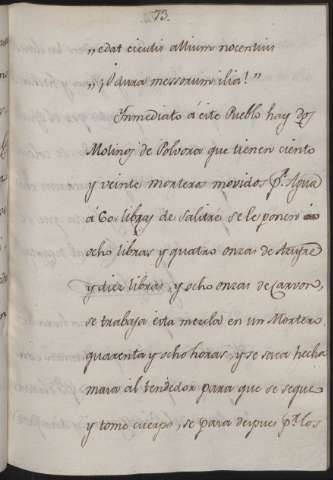 73.
„edat cicutis allium nocentius
„¡O dura messorum ilia!”
Inmediato á este Pueblo hay dos
Molinos de Polvora que tienen ciento
y veinte morteros movidos p.r Agua
á 60 libras de Salitre se le ponen
ocho libras y quatro onzas de Azufre
y diez libras, y ocho onzas de Carvon,
se trabaja esta mezcla en un Mortero
quarenta y ocho horas, y se saca hecha
masa al tendedor para que se seque
y tome cuerpo, se pasa despues p.r los